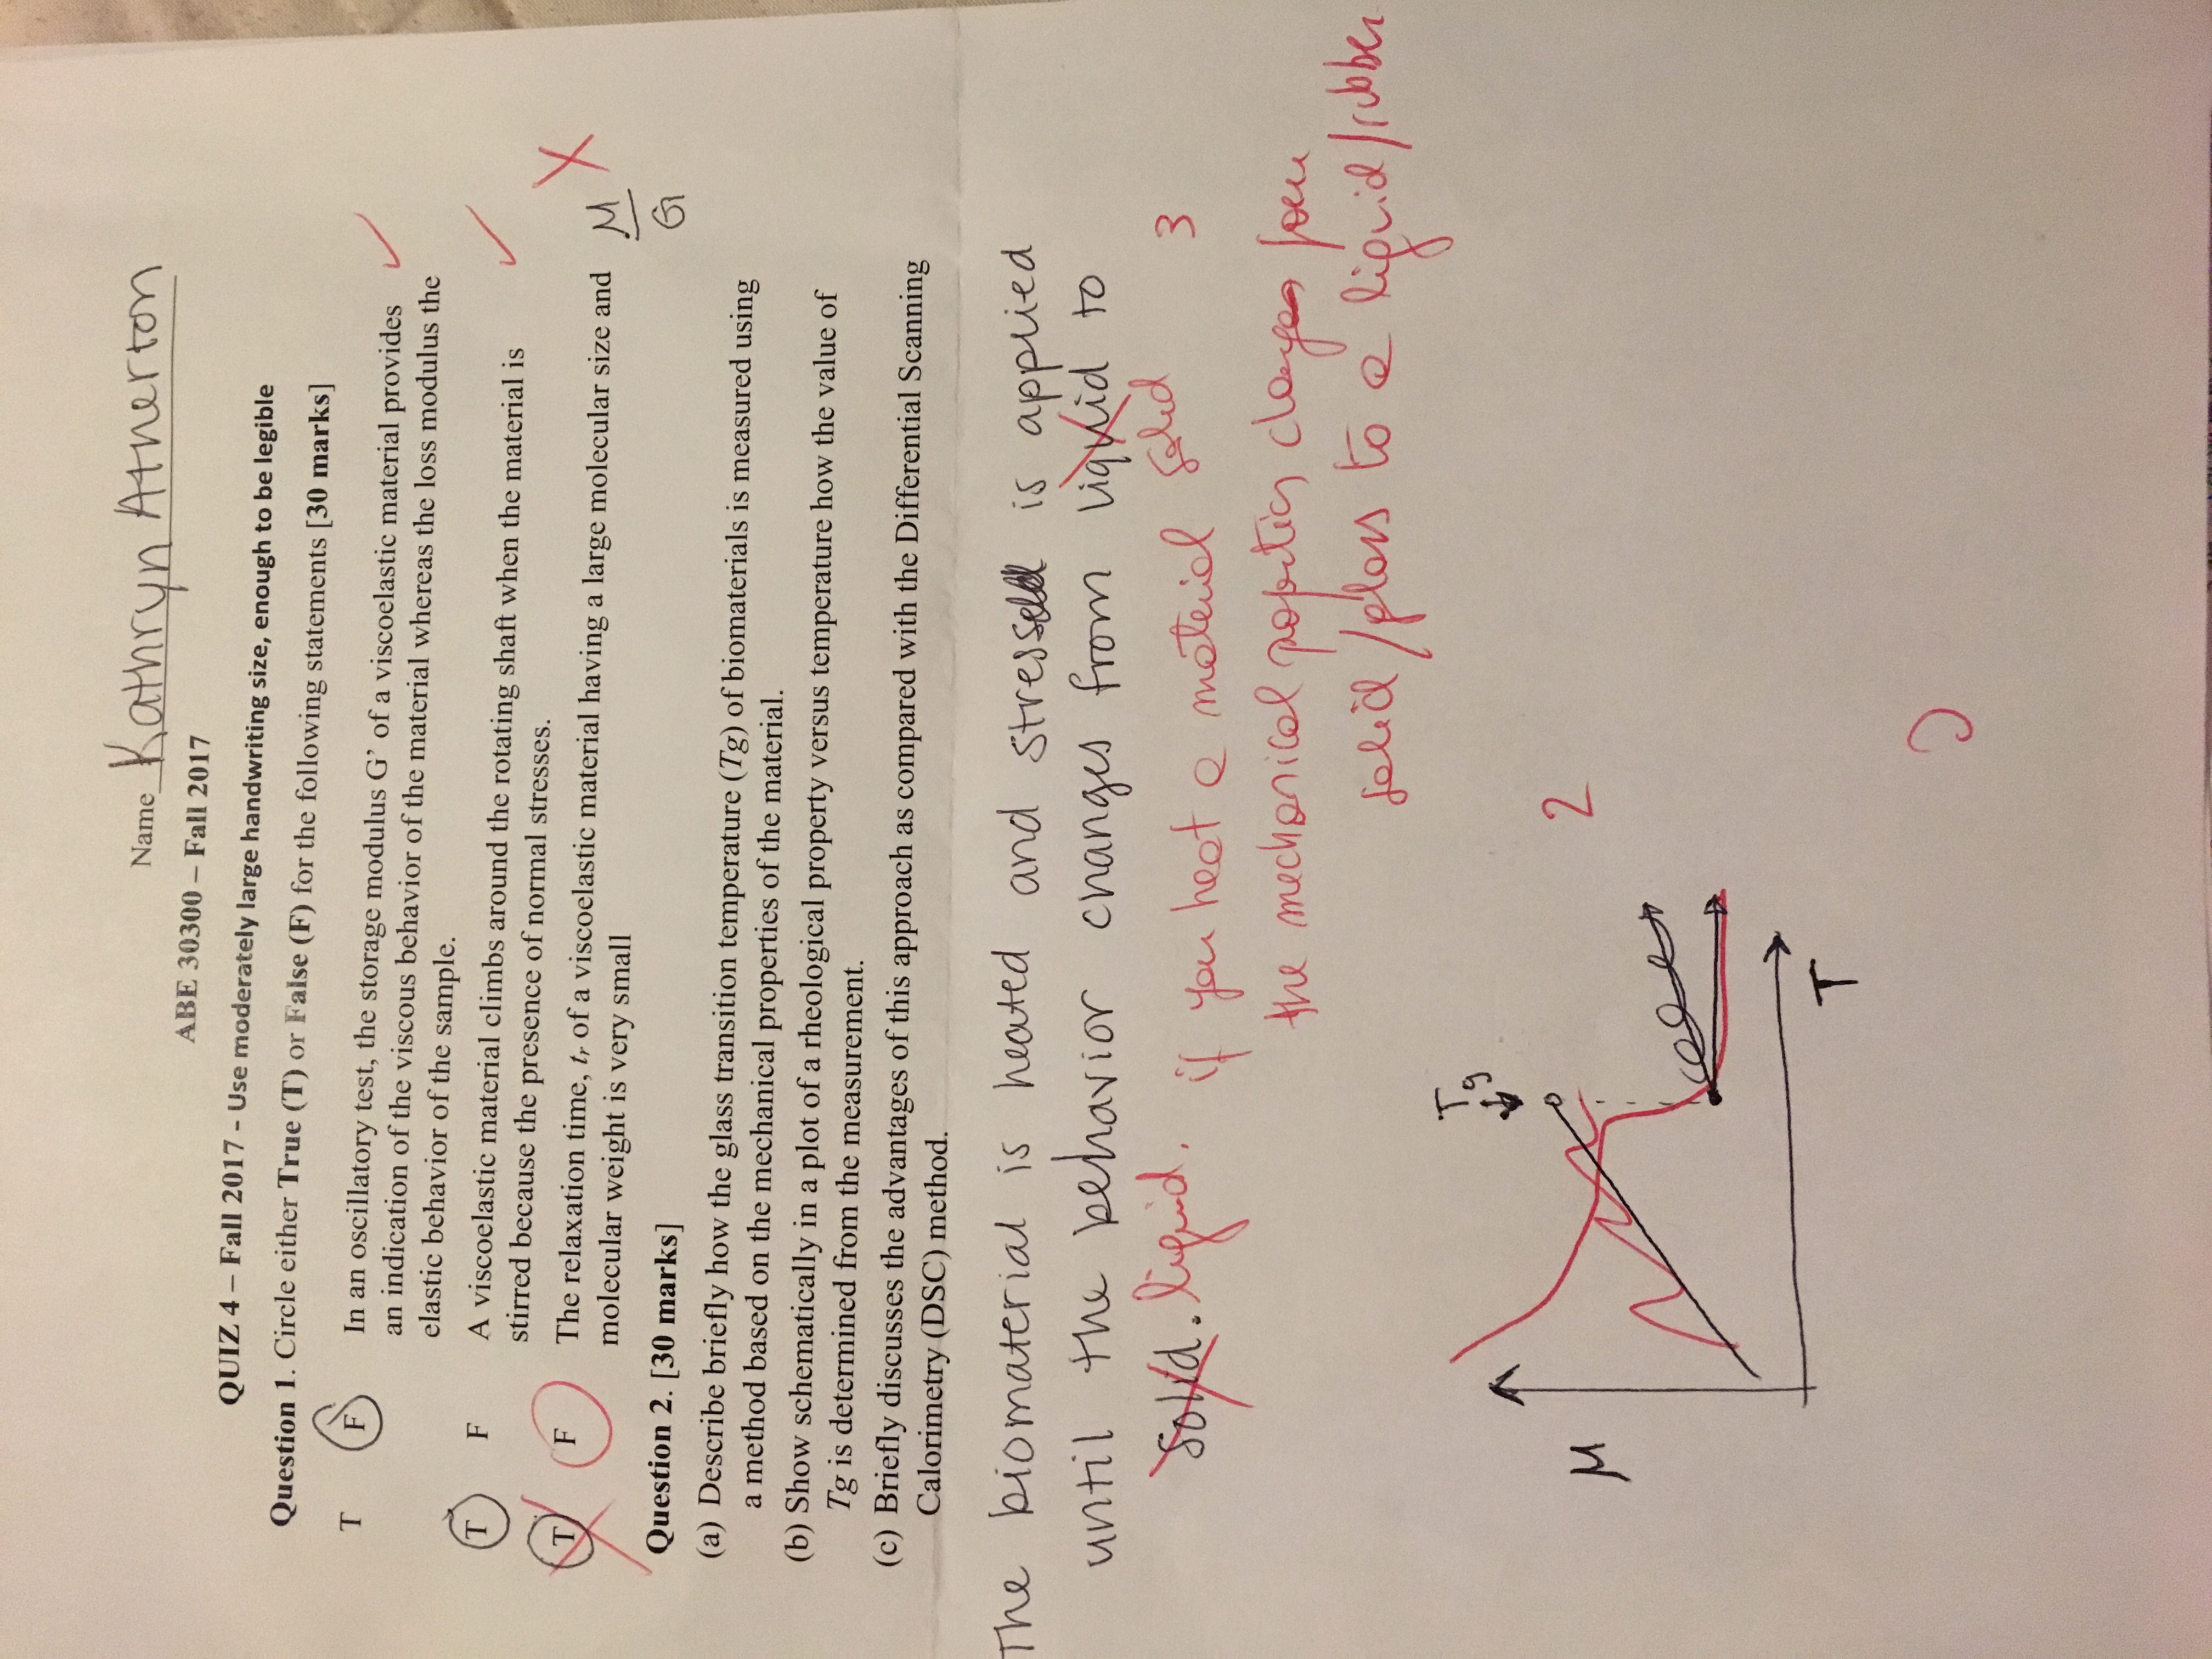 Name Kathryn Atherton
ABE 30300 – Fall 2017
QUIZ 4 – Fall 2017 - Use moderately large handwriting size, enough to be legible
Question 1. Circle either True (T) or False (F) for the following statements [30 marks]
T F In an oscillatory test, the storage modulus G' of a viscoelastic material provides
an indication of the viscous behavior of the material whereas the loss modulus the
elastic behavior of the sample.
T F A viscoelastic material climbs around the rotating shaft when the material is
stirred because the presence of normal stresses.
T F The relaxation time, tr of a viscoelastic material having a large molecular size and
molecular weight is very small
M
G
Question 2. [30 marks]
(a) Describe briefly how the glass transition temperature (Tg) of biomaterials is measured using
a method based on the mechanical properties of the material.
(b) Show schematically in a plot of a rheological property versus temperature how the value of
Tg is determined from the measurement.
(c) Briefly discusses the advantages of this approach as compared with the Differential Scanning
Calorimetry (DSC) method.
The biomaterial is heated and stress is applied
until the behavior changes from liquid to
solid. liquid. if you heat a material solid 3
the mechanical properties changes from
solid/glass to a liquid/rubber
Tg
M
2
T